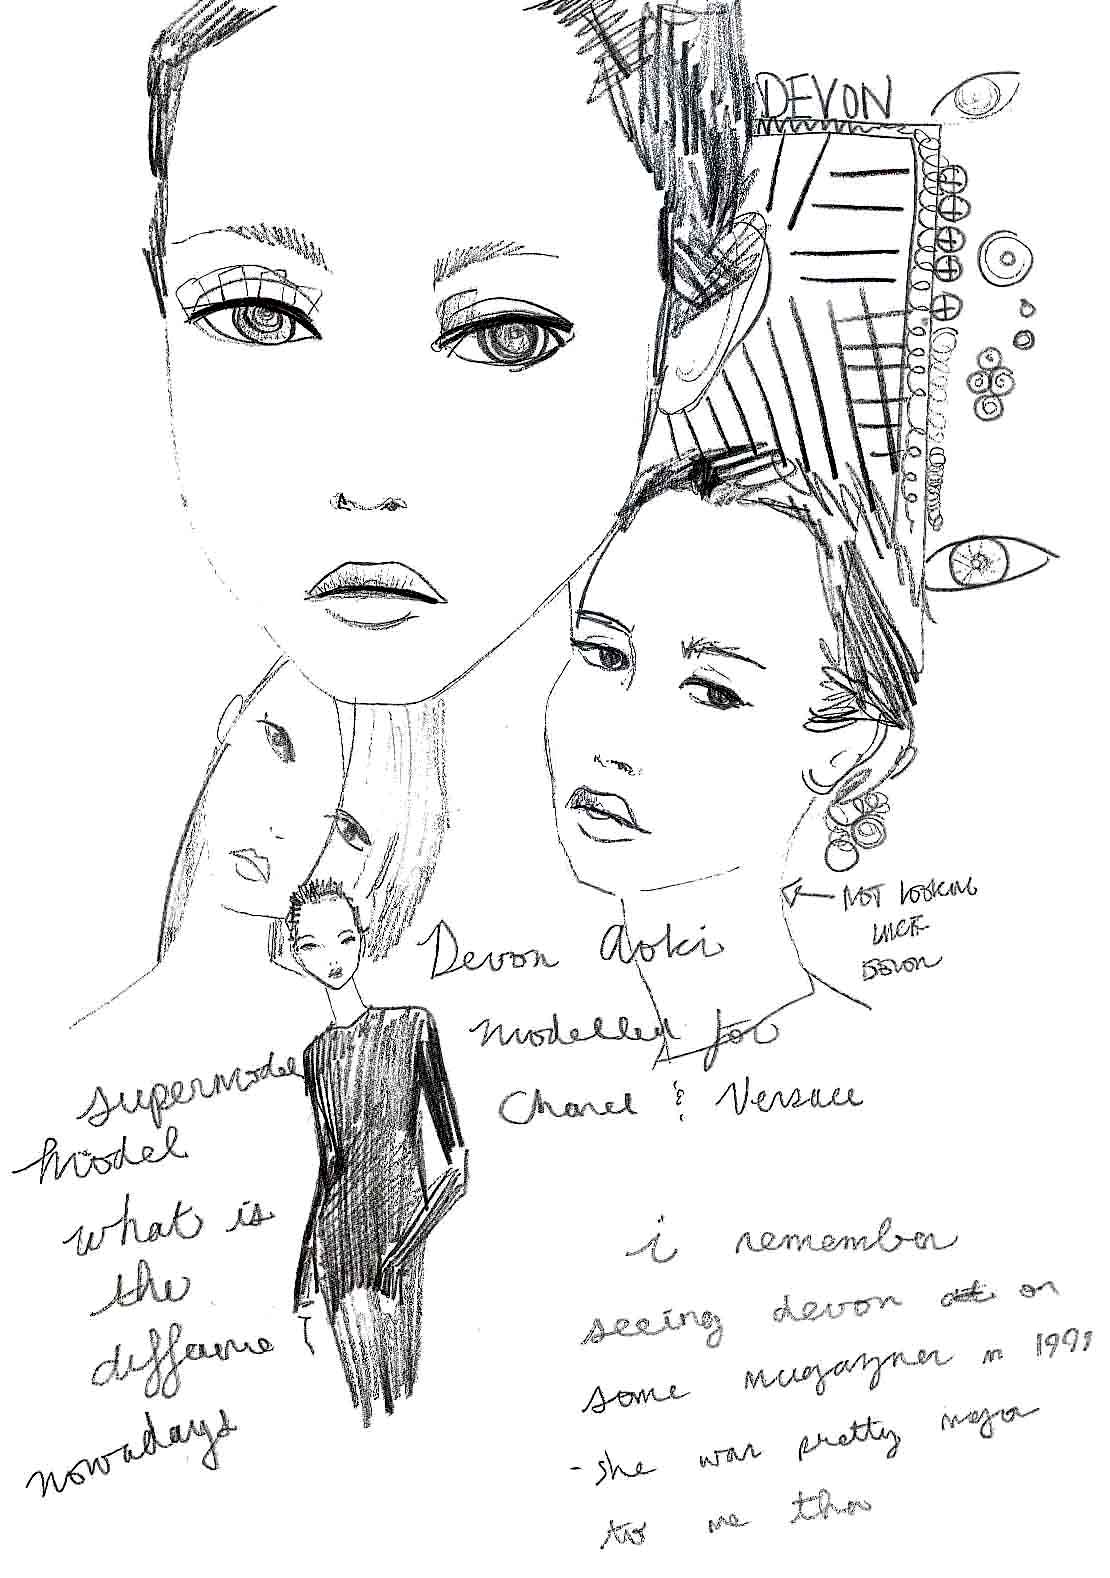 DEVON
NOT LOOKING
LIKE
DEVON
Devon Aoki
modelled for
Chanel & Versace
supermodel
model
what is
the
diffarne
nowadays
i remember
seeing devon on
some magazines in 199
- she was pretty mega
to me tho